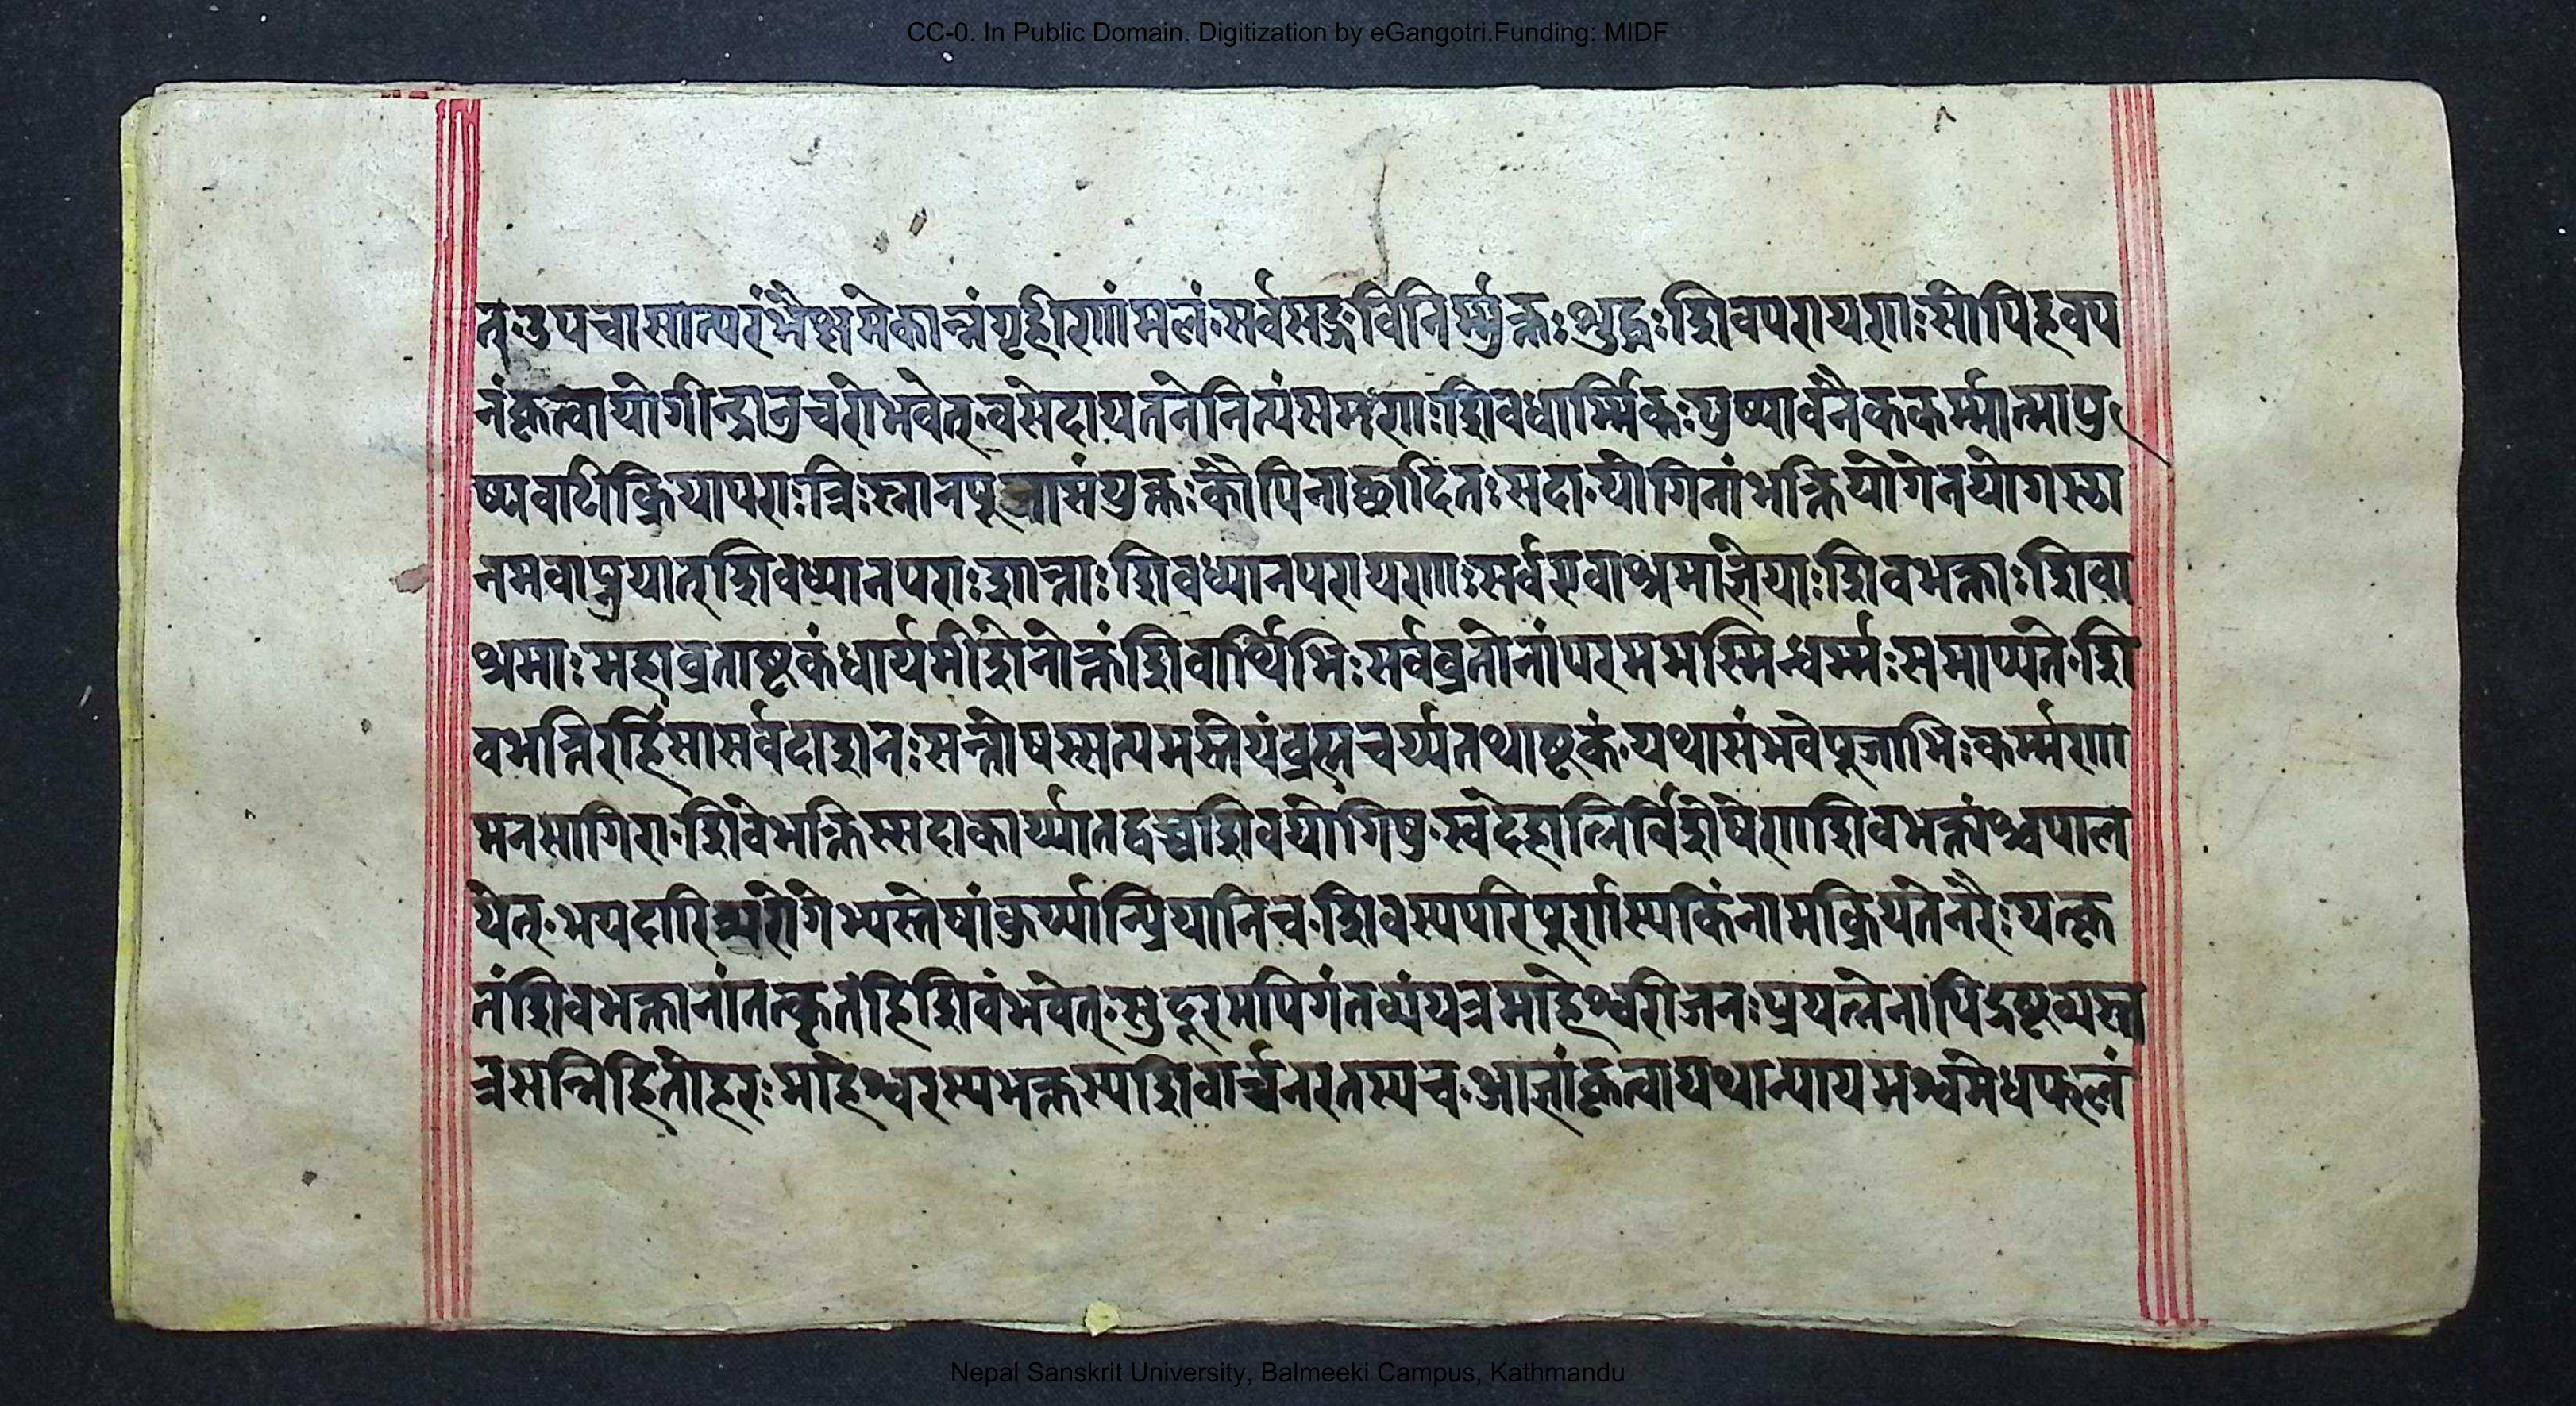 CC-0. In Public Domain. Digitization by eGangotri.Funding: MIDF
त्·उपवासात्परंभैक्ष्यमेकान्नंगृहीणांमलं·सर्वसङ्गविनिर्म्मुक्तःशुद्धःशिवपरायणःसोपिहवप
नंकृत्वायोगीन्द्रानुचरोभवेत्·वसेदायतनेनित्यंसमणःशिवधार्म्मिकःपुष्पावनैककर्म्मात्मापु
ष्पवाटीक्रियापराःत्रिःस्नानपूजासंयुक्तःकौपिनाछादितःसदा·योगिनांभक्तियोगेनयोगस्था
नमवाप्नुयात्शिवध्यानपराःशान्ताःशिवध्यानपरायणाःसर्वएवाश्रमाज्ञेयाःशिवभक्ताःशिवा
श्रमाःमहाव्रताष्टकंधार्यमीशेनोक्तंशिवार्थिभिःसर्वव्रतोनांपरममस्मिन्धर्म्मःसमाप्यते·शि
वभक्तिरहिंसासर्वदाशनःसन्तोषस्सत्यमस्तेयंब्रह्मचर्य्यतथाष्टकं·यथासंभवेपूजाभिःकर्म्मणा
मनसागिरा·शिवेभक्तिस्सदाकार्य्यातद्वच्चशिवयोगिषु·स्वदेहान्निर्विशेषेणशिवभक्तांश्चपाल
येत्·भयदारिद्यरोगेभ्यस्तेषांकुर्य्यान्प्रियानिच·शिवस्यपरिपूर्णस्यकिंनामक्रियतेनरैःयत्कृ
तंशिवभक्तानांतत्कृतंहिशिवंभवेत्·सुदूरमपिगंतव्यंयत्रमाहेश्वरोजनःप्रयत्नेनापिद्रष्टव्यस्त
त्रसन्निहितोहरःमाहेश्वरस्यभक्तस्यशिवार्च्चनरतस्यच·आज्ञांकृत्वायथान्यायमश्वमेधफलं
Nepal Sanskrit University, Balmeeki Campus, Kathmandu